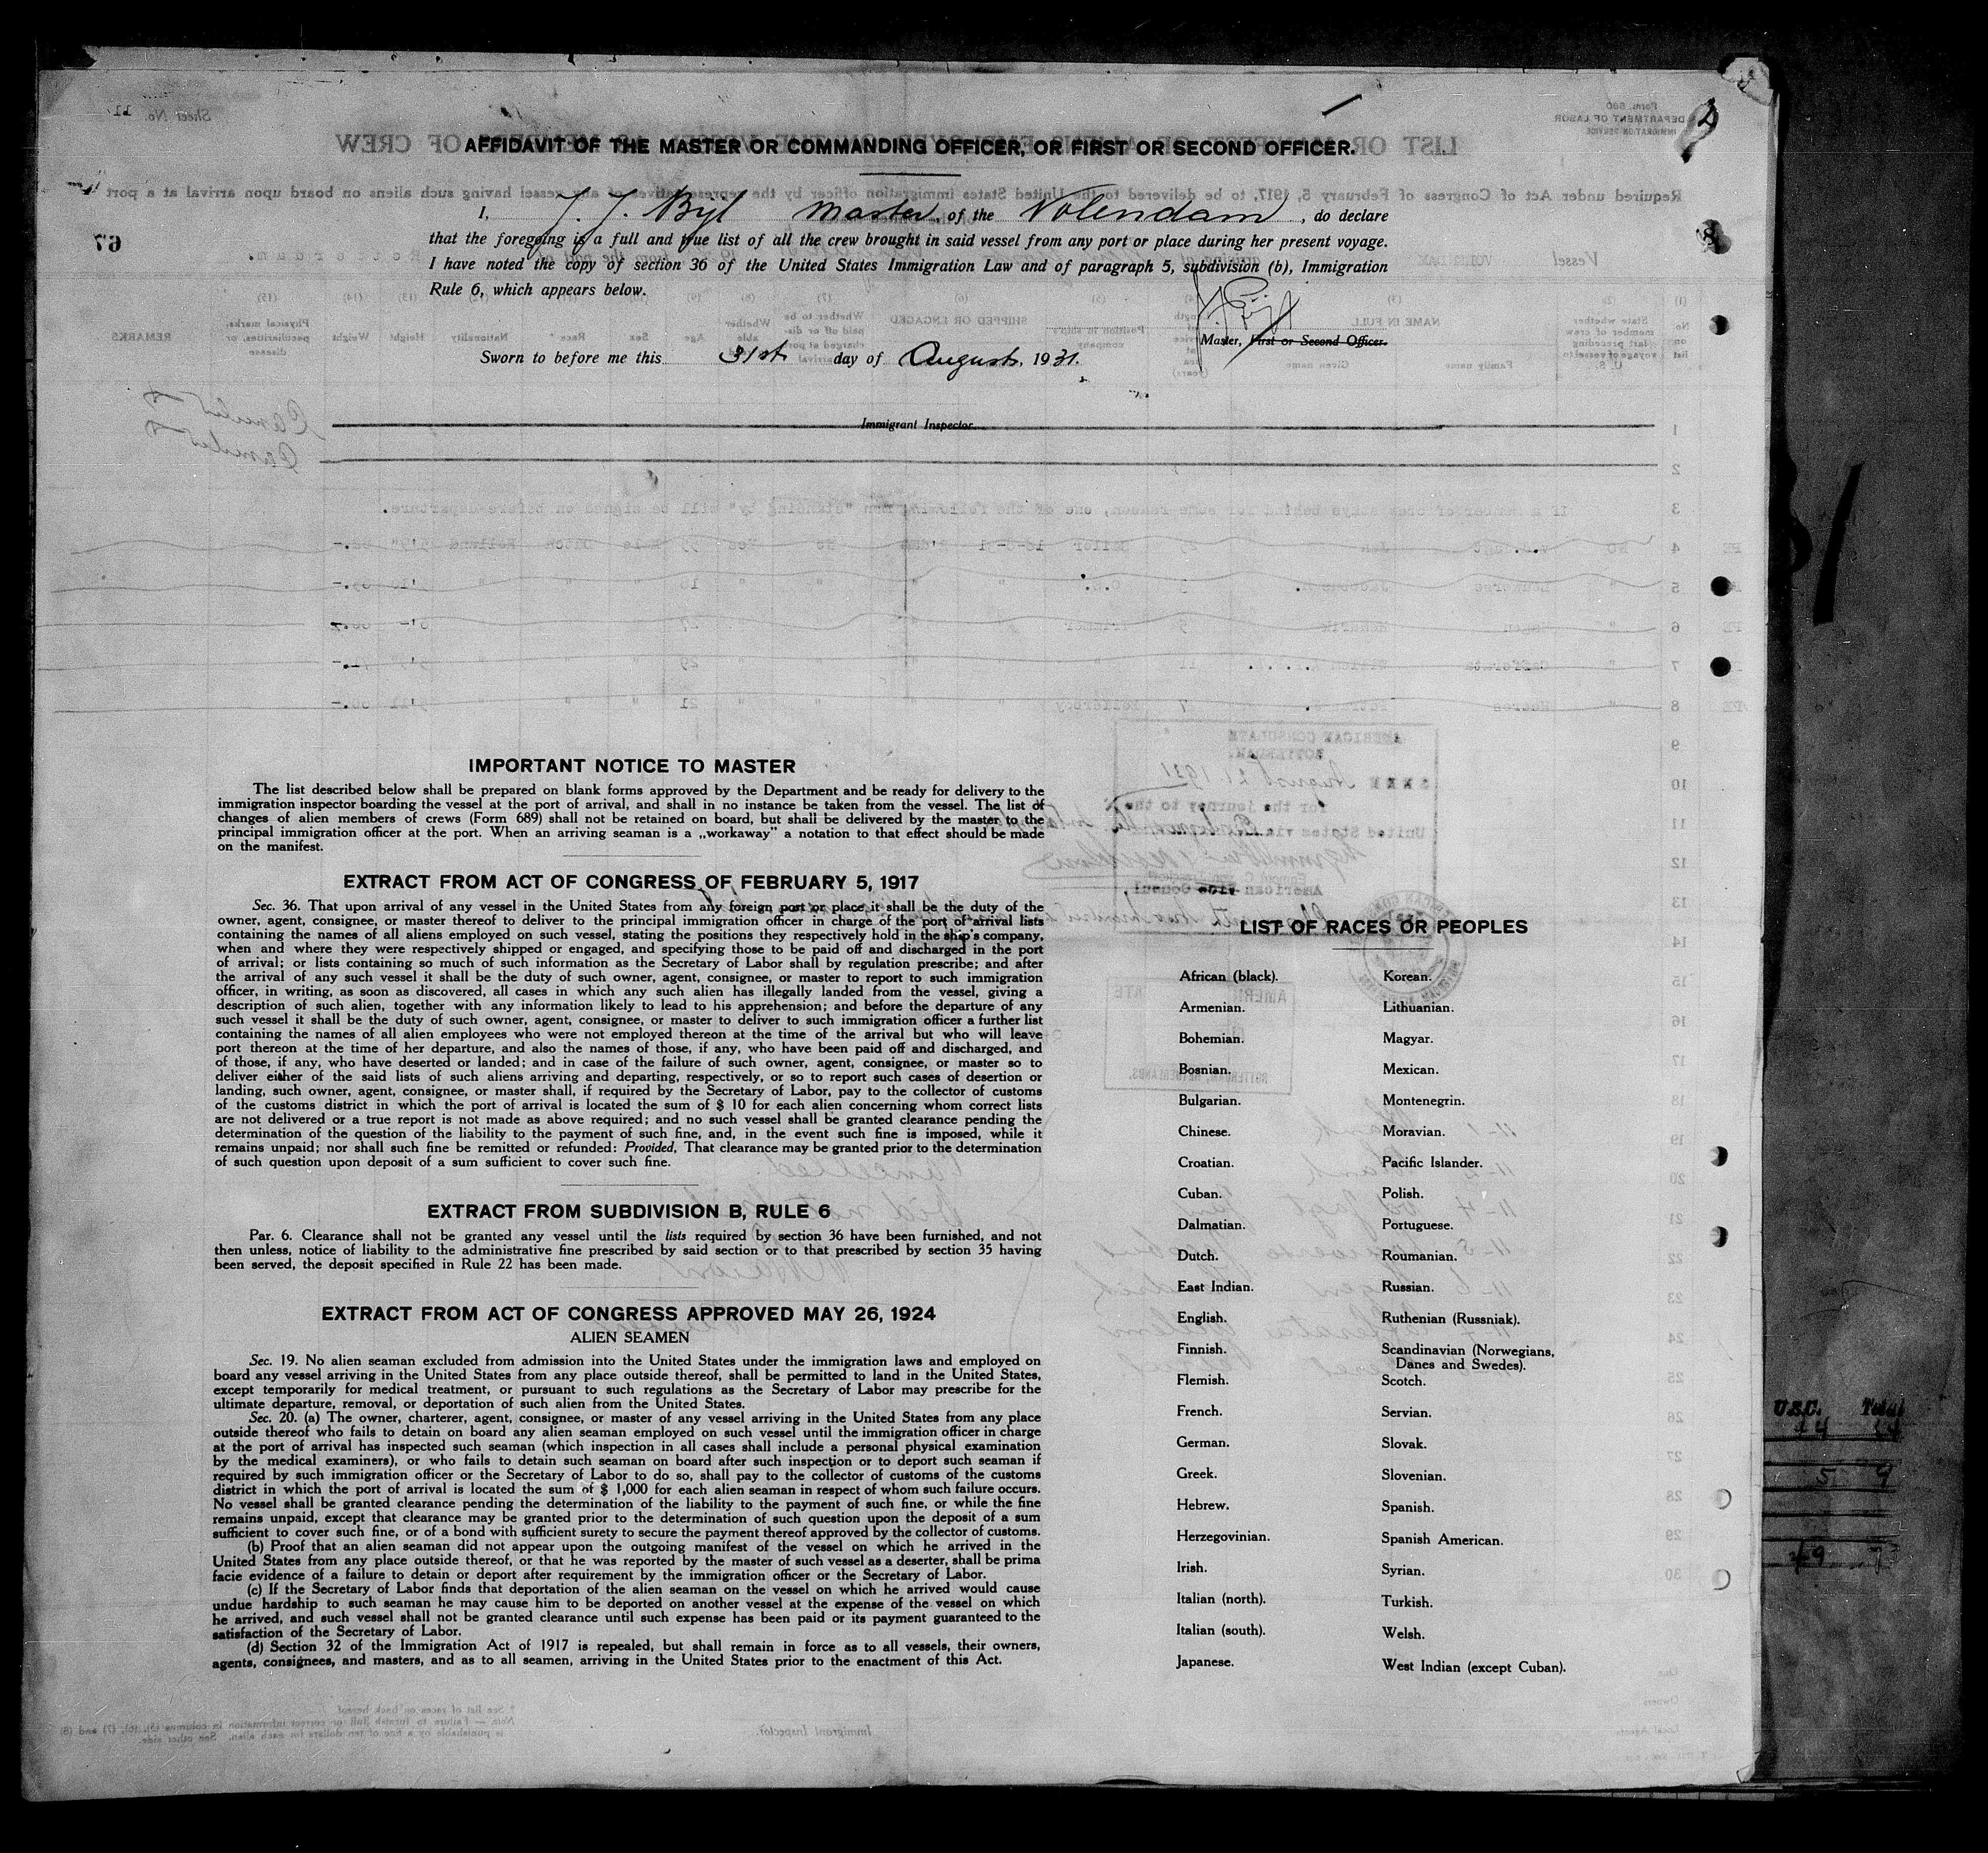 AFFIDAVIT OF THE MASTER OR COMMANDING OFFICER, OR FIRST OR SECOND OFFICER.
I, J. J. Bijl Master, of the Volendam, do declare
that the foregoing is a full and true list of all the crew brought in said vessel from any port or place during her present voyage.
I have noted the copy of section 36 of the United States Immigration Law and of paragraph 5, subdivision (b), Immigration
Rule 6, which appears below.
Master, First or Second Officer.
Sworn to before me this 31st day of August, 1931.
Immigrant Inspector
IMPORTANT NOTICE TO MASTER
The list described below shall be prepared on blank forms approved by the Department and be ready for delivery to the
immigration inspector boarding the vessel at the port of arrival, and shall in no instance be taken from the vessel. The list of
changes of alien members of crews (Form 689) shall not be retained on board, but shall be delivered by the master to the
principal immigration officer at the port. When an arriving seaman is a „workaway” a notation to that effect should be made
on the manifest.
EXTRACT FROM ACT OF CONGRESS OF FEBRUARY 5, 1917
Sec. 36. That upon arrival of any vessel in the United States from any foreign port or place it shall be the duty of the
owner, agent, consignee, or master thereof to deliver to the principal immigration officer in charge of the port of arrival lists
containing the names of all aliens employed on such vessel, stating the positions they respectively hold in the ship's company,
when and where they were respectively shipped or engaged, and specifying those to be paid off and discharged in the port
of arrival; or lists containing so much of such information as the Secretary of Labor shall by regulation prescribe; and after
the arrival of any such vessel it shall be the duty of such owner, agent, consignee, or master to report to such immigration
officer, in writing, as soon as discovered, all cases in which any such alien has illegally landed from the vessel, giving a
description of such alien, together with any information likely to lead to his apprehension; and before the departure of any
such vessel it shall be the duty of such owner, agent, consignee, or master to deliver to such immigration officer a further list
containing the names of all alien employees who were not employed thereon at the time of the arrival but who will leave
port thereon at the time of her departure, and also the names of those, if any, who have been paid off and discharged, and
of those, if any, who have deserted or landed; and in case of the failure of such owner, agent, consignee, or master so to
deliver either of the said lists of such aliens arriving and departing, respectively, or so to report such cases of desertion or
landing, such owner, agent, consignee, or master shall, if required by the Secretary of Labor, pay to the collector of customs
of the customs district in which the port of arrival is located the sum of $ 10 for each alien concerning whom correct lists
are not delivered or a true report is not made as above required; and no such vessel shall be granted clearance pending the
determination of the question of the liability to the payment of such fine, and, in the event such fine is imposed, while it
remains unpaid; nor shall such fine be remitted or refunded: Provided, That clearance may be granted prior to the determination
of such question upon deposit of a sum sufficient to cover such fine.
EXTRACT FROM SUBDIVISION B, RULE 6
Par. 6. Clearance shall not be granted any vessel until the lists required by section 36 have been furnished, and not
then unless, notice of liability to the administrative fine prescribed by said section or to that prescribed by section 35 having
been served, the deposit specified in Rule 22 has been made.
EXTRACT FROM ACT OF CONGRESS APPROVED MAY 26, 1924
ALIEN SEAMEN
Sec. 19. No alien seaman excluded from admission into the United States under the immigration laws and employed on
board any vessel arriving in the United States from any place outside thereof, shall be permitted to land in the United States,
except temporarily for medical treatment, or pursuant to such regulations as the Secretary of Labor may prescribe for the
ultimate departure, removal, or deportation of such alien from the United States.
Sec. 20. (a) The owner, charterer, agent, consignee, or master of any vessel arriving in the United States from any place
outside thereof who fails to detain on board any alien seaman employed on such vessel until the immigration officer in charge
at the port of arrival has inspected such seaman (which inspection in all cases shall include a personal physical examination
by the medical examiners), or who fails to detain such seaman on board after such inspection or to deport such seaman if
required by such immigration officer or the Secretary of Labor to do so, shall pay to the collector of customs of the customs
district in which the port of arrival is located the sum of $ 1,000 for each alien seaman in respect of whom such failure occurs.
No vessel shall be granted clearance pending the determination of the liability to the payment of such fine, or while the fine
remains unpaid, except that clearance may be granted prior to the determination of such question upon the deposit of a sum
sufficient to cover such fine, or of a bond with sufficient surety to secure the payment thereof approved by the collector of customs.
(b) Proof that an alien seaman did not appear upon the outgoing manifest of the vessel on which he arrived in the
United States from any place outside thereof, or that he was reported by the master of such vessel as a deserter, shall be prima
facie evidence of a failure to detain or deport after requirement by the immigration officer or the Secretary of Labor.
(c) If the Secretary of Labor finds that deportation of the alien seaman on the vessel on which he arrived would cause
undue hardship to such seaman he may cause him to be deported on another vessel at the expense of the vessel on which
he arrived, and such vessel shall not be granted clearance until such expense has been paid or its payment guaranteed to the
satisfaction of the Secretary of Labor.
(d) Section 32 of the Immigration Act of 1917 is repealed, but shall remain in force as to all vessels, their owners,
agents, consignees, and masters, and as to all seamen, arriving in the United States prior to the enactment of this Act.
LIST OF RACES OR PEOPLES
African (black).
Armenian.
Bohemian.
Bosnian.
Bulgarian.
Chinese.
Croatian.
Cuban.
Dalmatian.
Dutch.
East Indian.
English.
Finnish.
Flemish.
French.
German.
Greek.
Hebrew.
Herzegovinian.
Irish.
Italian (north).
Italian (south).
Japanese.
Korean.
Lithuanian.
Magyar.
Mexican.
Montenegrin.
Moravian.
Pacific Islander.
Polish.
Portuguese.
Roumanian.
Russian.
Ruthenian (Russniak).
Scandinavian (Norwegians,
Danes and Swedes).
Scotch.
Servian.
Slovak.
Slovenian.
Spanish.
Spanish American.
Syrian.
Turkish.
Welsh.
West Indian (except Cuban).
U.S.C. Total
5 9